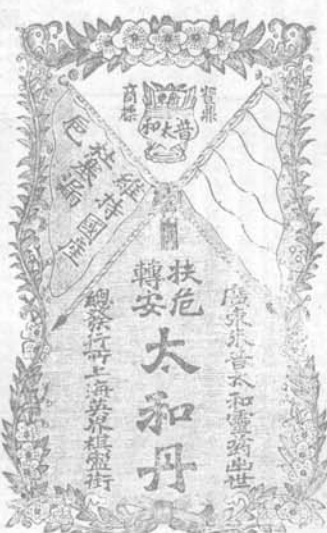 寶鼎
商標
普太和
維持國產
杜塞漏卮
廣東朱普太和靈葯出世
扶危
轉安
太和丹
總發行所上海英界棋盤街